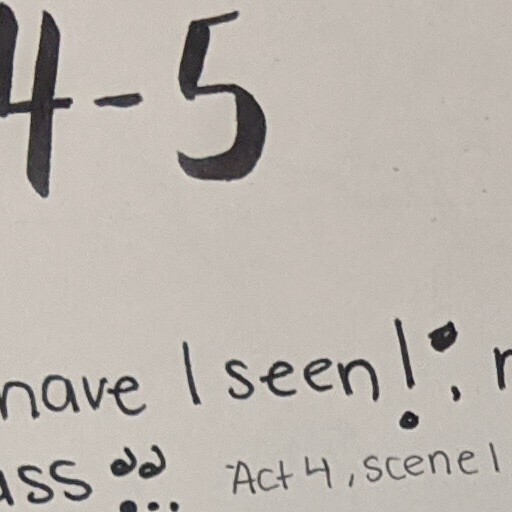 4-5
have I seen!
ass ... Act 4, scene 1